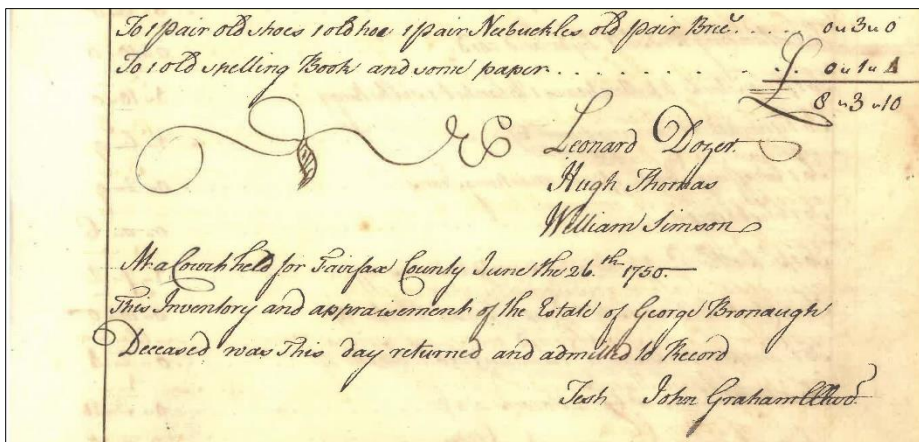 To 1 pair old shoes 1 old hoe 1 pair Neebuckles old pair Brie.s .... 0 " 3 " 0
To 1 old spelling Book and some paper .......... 0 " 1 " 4
£ 8 " 3 " 10
Leonard Dozer
Hugh Thomas
William Simson
At a Court held for Fairfax County June the 26.th 1750.
This Inventory and appraisement of the Estate of George Bronaugh
Deceased was This day returned and admitted to Record
Test John Graham